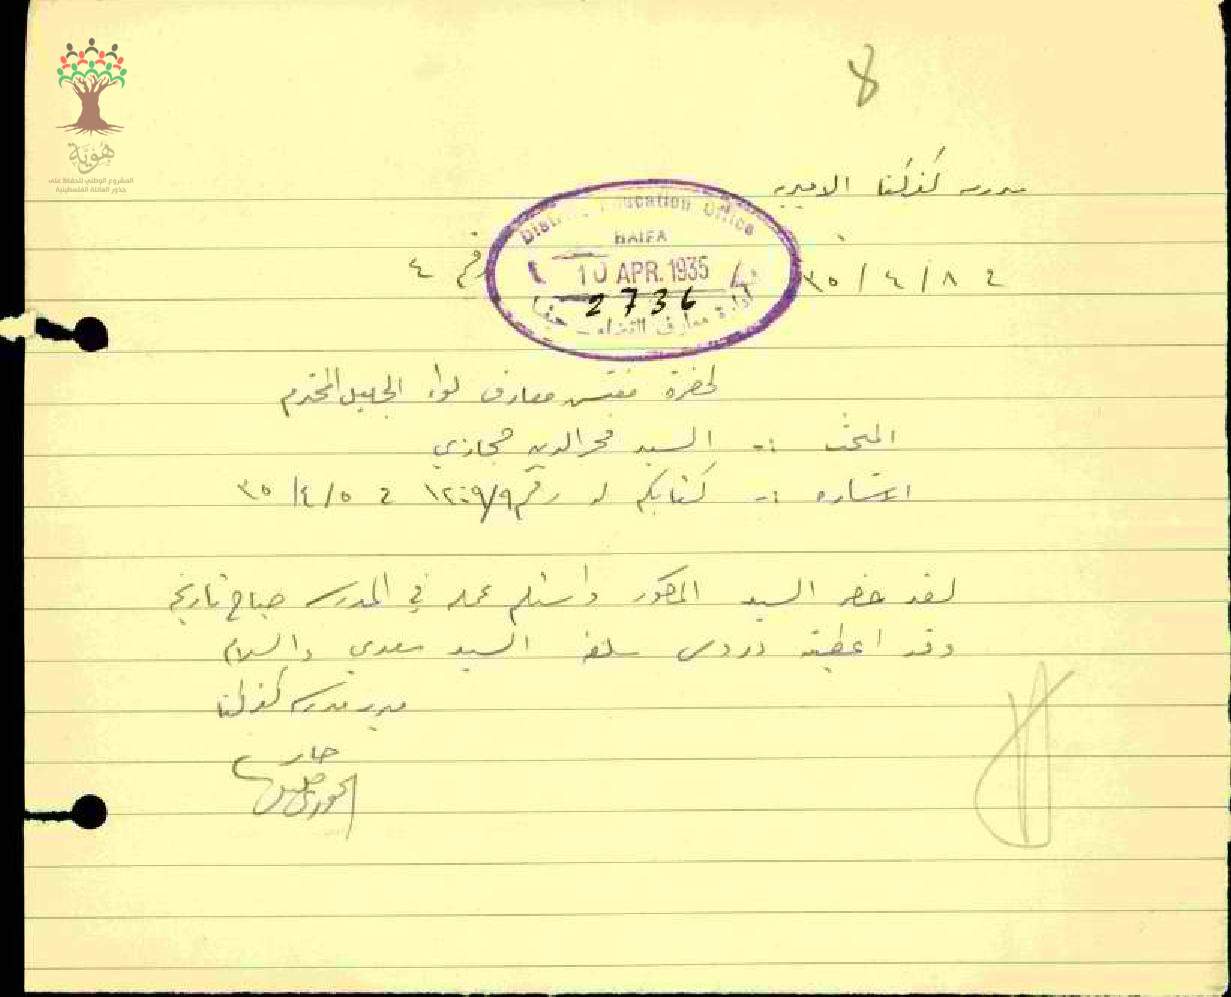 8
هُويّة
المشروع الوطني للحفاظ على
جذور العائلة الفلسطينية
مدرسة كفركنا الاميرية
District Education Office
HAIFA
10 APR. 1935
2736
ادارة معارف اللواء حيفا
ت ٨ / ٤ / ٣٥
رقم ٤
لحضرة مفتش معارف لواء الجليل المحترم
المبحث :- السيد فخر الدين حجازي
الاشارة :- كتابكم رقم ت ٥ / ٤ / ٣٥
لقد حضر السيد المذكور واستلم عمله في المدرسة صباح تاريخه
وقد اعطيته دروس سلفه السيد سعدي والسلام
مدير مدرسة كفركنا
الخوري